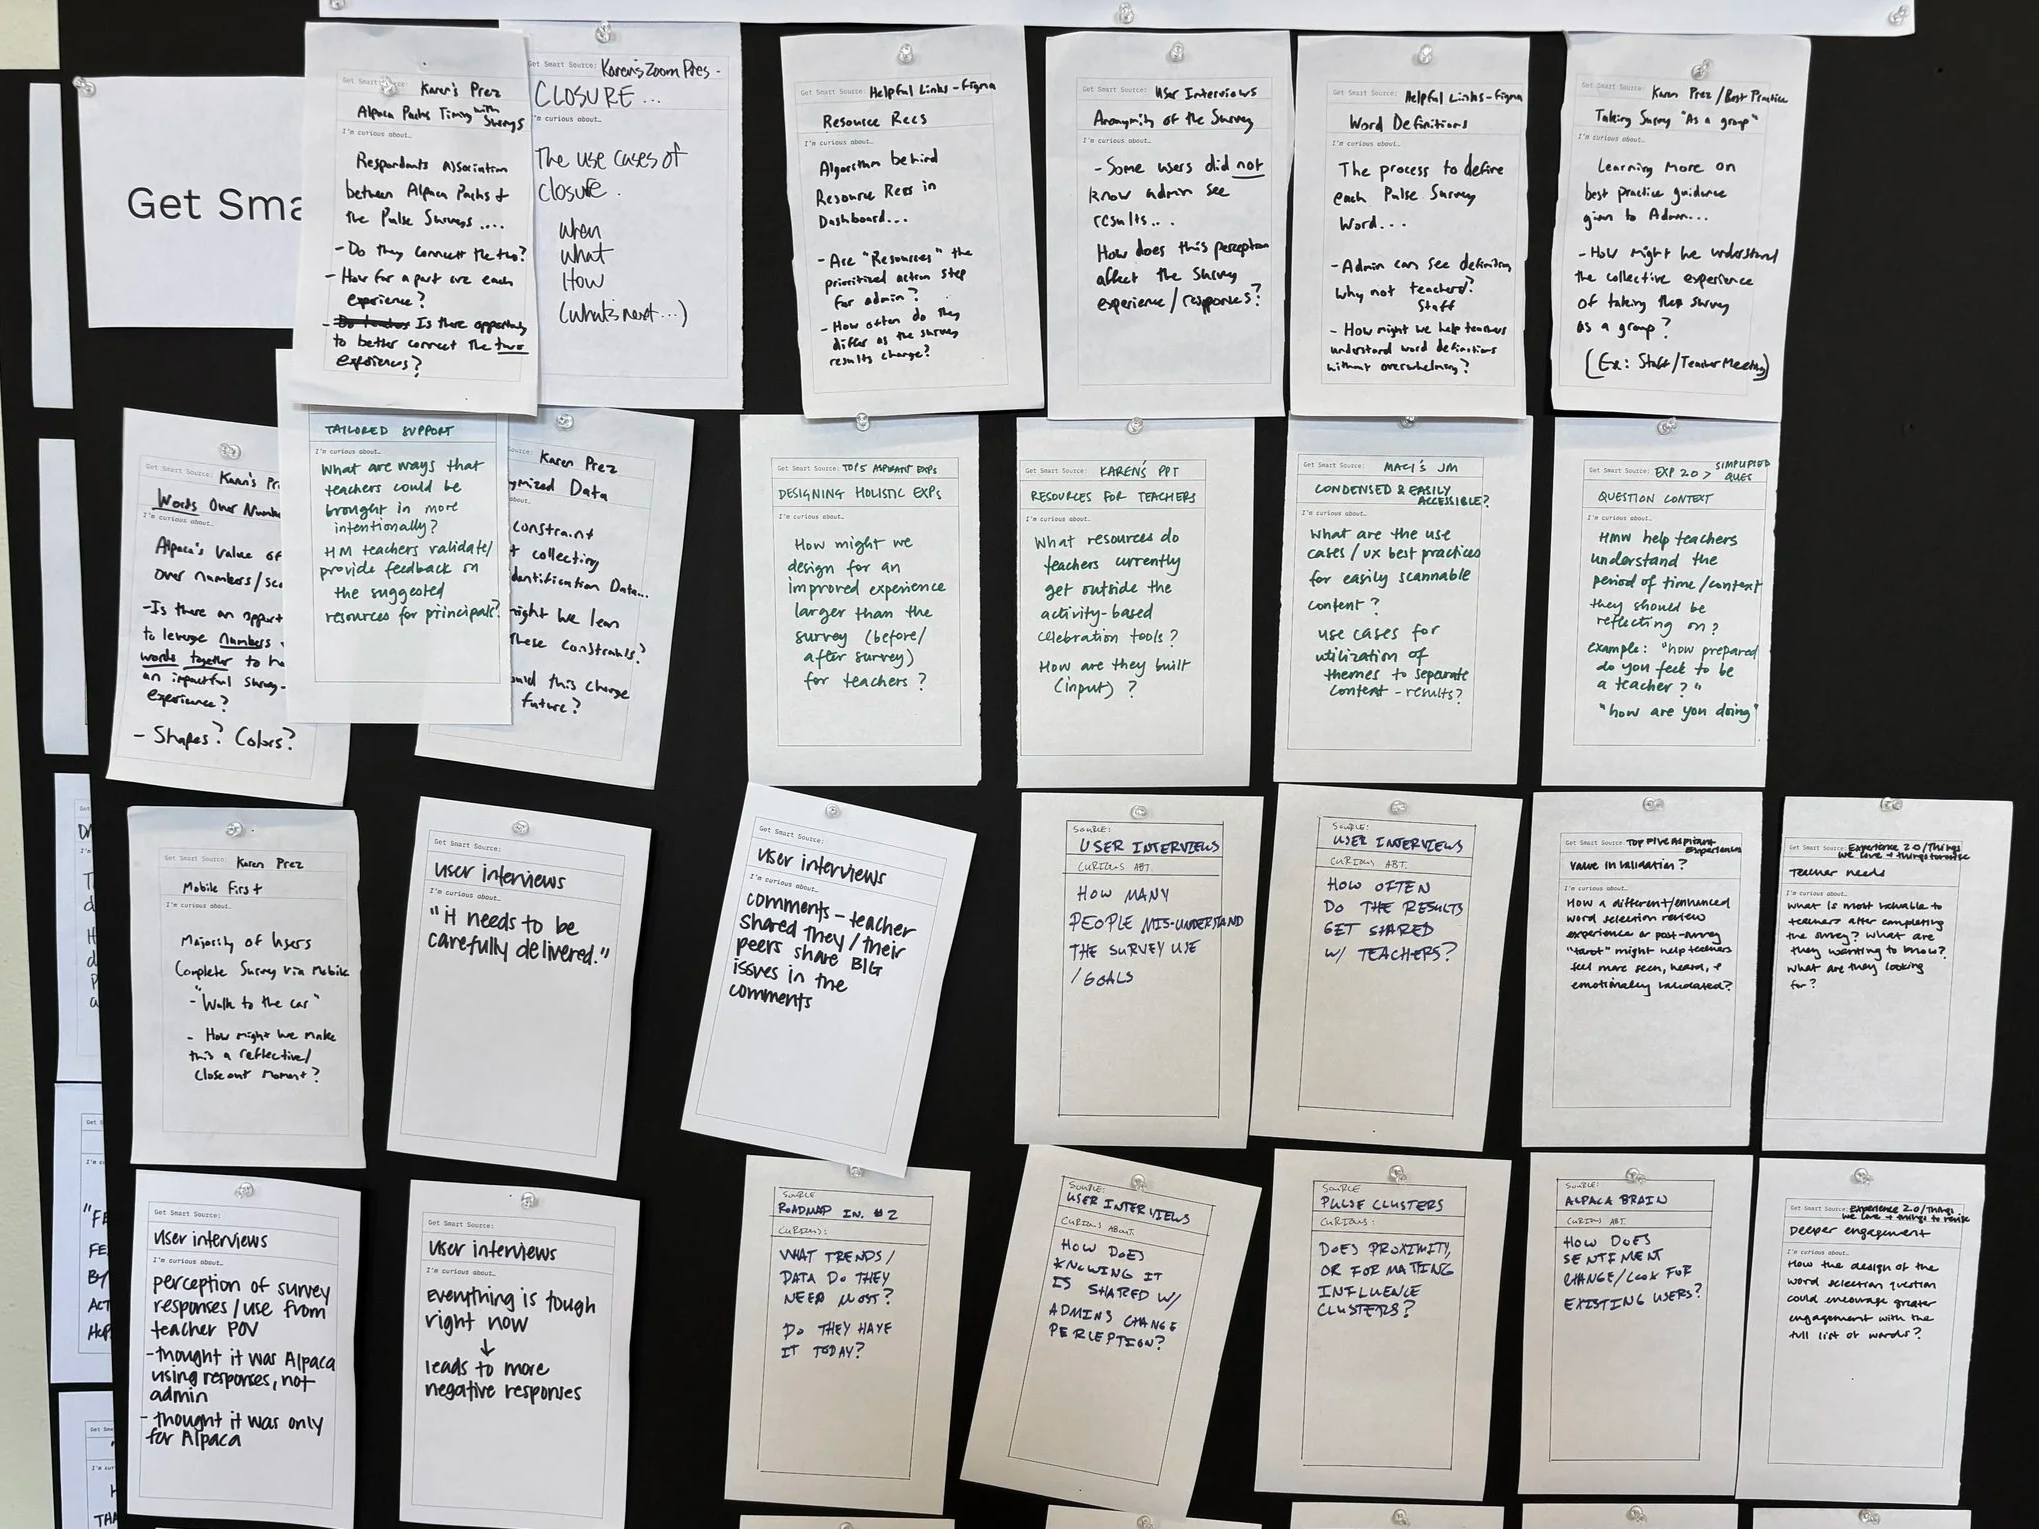 Get Sma
Get Smart Source: Karen's Prez
Alpaca Packs Timing with
Surveys
I'm curious about…
Respondants Association
between Alpaca Packs &
the Pulse Surveys....
- Do they connect the two?
- How far apart are each
experience?
- Is there opportunity
to better connect the two
experiences?
Get Smart Source: Karen's Zoom Pres -
CLOSURE ...
I'm curious about…
The use cases of
closure.
when
what
How
(what's next...)
Get Smart Source: Helpful Links - Figma
Resource Recs
I'm curious about…
Algorithm behind
Resource Recs in
Dashboard...
- Are "Resources" the
prioritized action step
for admin?
- How often do they
differ as the survey
results change?
Get Smart Source: User Interviews
Anonymity of the Survey
I'm curious about…
- Some users did not
know admin see
results...
How does this perception
affect the survey
experience/responses?
Get Smart Source: Helpful Links - Figma
Word Definitions
I'm curious about…
The process to define
each Pulse Survey
Word...
- Admin can see definitions
why not teachers?
Staff
- How might we help teachers
understand word definitions
without overwhelming?
Get Smart Source: Karen Prez/Best Practice
Taking Survey "As a group"
I'm curious about…
Learning More on
best practice guidance
given to Admin...
- How might we understand
the collective experience
of taking the survey
as a group?
(Ex: Staff/Teacher Meeting)
Get Smart Source: Karen's Pr
Words Over Numbe
I'm curious about…
Alpaca's value of
over numbers/sco
- Is there an opport
to leverage numbers
words together to
an impactful survey
experience?
- Shapes? Colors?
TAILORED SUPPORT
I'm curious about…
What are ways that
teachers could be
brought in more
intentionally?
HM teachers validate/
provide feedback on
the suggested
resources for principals?
Karen Prez
ymized Data
about…
constraint
t collecting
dentification Data...
might we lean
these constraints?
ould this change
future?
Get Smart Source: TOP 5 ASPIRANT EXPs
DESIGNING HOLISTIC EXPs
I'm curious about…
How might we
design for an
improved experience
larger than the
survey (before/
after survey)
for teachers?
Get Smart Source: KAREN'S PPT
RESOURCES FOR TEACHERS
I'm curious about…
What resources do
teachers currently
get outside the
activity-based
celebration tools?
How are they built
(input)?
Get Smart Source: MACI'S JM
CONDENSED & EASILY
ACCESSIBLE?
I'm curious about…
What are the use
cases/UX best practices
for easily scannable
content?
use cases for
utilization of
themes to separate
content - results?
Get Smart Source: EXP 2.0 > SIMPLIFIED
QUES
QUESTION CONTEXT
I'm curious about…
HMW help teachers
understand the
period of time/context
they should be
reflecting on?
example: "how prepared
do you feel to be
a teacher?"
"how are you doing"
Get Smart Source: Karen Prez
Mobile First
I'm curious about…
Majority of Users
Complete Survey via Mobile
- "Walk to the car"
- How might we make
this a reflective/
Close out moment?
Get Smart Source:
User interviews
I'm curious about…
"it needs to be
carefully delivered."
Get Smart Source:
User interviews
I'm curious about…
comments - teacher
shared they/their
peers share BIG
issues in the
comments
SOURCE:
USER INTERVIEWS
CURIOUS ABT.
HOW MANY
PEOPLE MIS-UNDERSTAND
THE SURVEY USE
/GOALS
SOURCE:
USER INTERVIEWS
CURIOUS ABT.
HOW OFTEN
DO THE RESULTS
GET SHARED
W/ TEACHERS?
Get Smart Source: Top Five Aspirant
Experiences
Value in Validation?
I'm curious about…
How a different/enhanced
word selection review
experience or post-survey
"tarot" might help teachers
feel more seen, heard, +
emotionally validated?
Get Smart Source: Experience 2.0/Things
we love + things to revise
Teacher needs
I'm curious about…
What is most valuable to
teachers after completing
the survey? What are
they wanting to know?
What are they looking
for?
Get Smart Source:
User interviews
I'm curious about…
perception of survey
responses/use from
teacher POV
- thought it was Alpaca
using responses, not
admin
- thought it was only
for Alpaca
Get Smart Source:
User interviews
I'm curious about…
Everything is tough
right now
↓
leads to more
negative responses
SOURCE
ROADMAP IN. #2
CURIOUS:
WHAT TRENDS/
DATA DO THEY
NEED MOST?
DO THEY HAVE
IT TODAY?
SOURCE:
USER INTERVIEWS
CURIOUS ABOUT.
HOW DOES
KNOWING IT
IS SHARED W/
ADMINS CHANGE
PERCEPTION?
SOURCE
PULSE CLUSTERS
CURIOUS:
DOES PROXIMITY,
OR FORMATTING
INFLUENCE
CLUSTERS?
SOURCE:
ALPACA BRAIN
CURIOUS ABT.
HOW DOES
SENTIMENT
CHANGE/LOOK FOR
EXISTING USERS?
Get Smart Source: Experience 2.0/Things
we love + things to revise
Deeper engagement
I'm curious about…
How the design of the
word selection question
could encourage greater
engagement with the
full list of words?